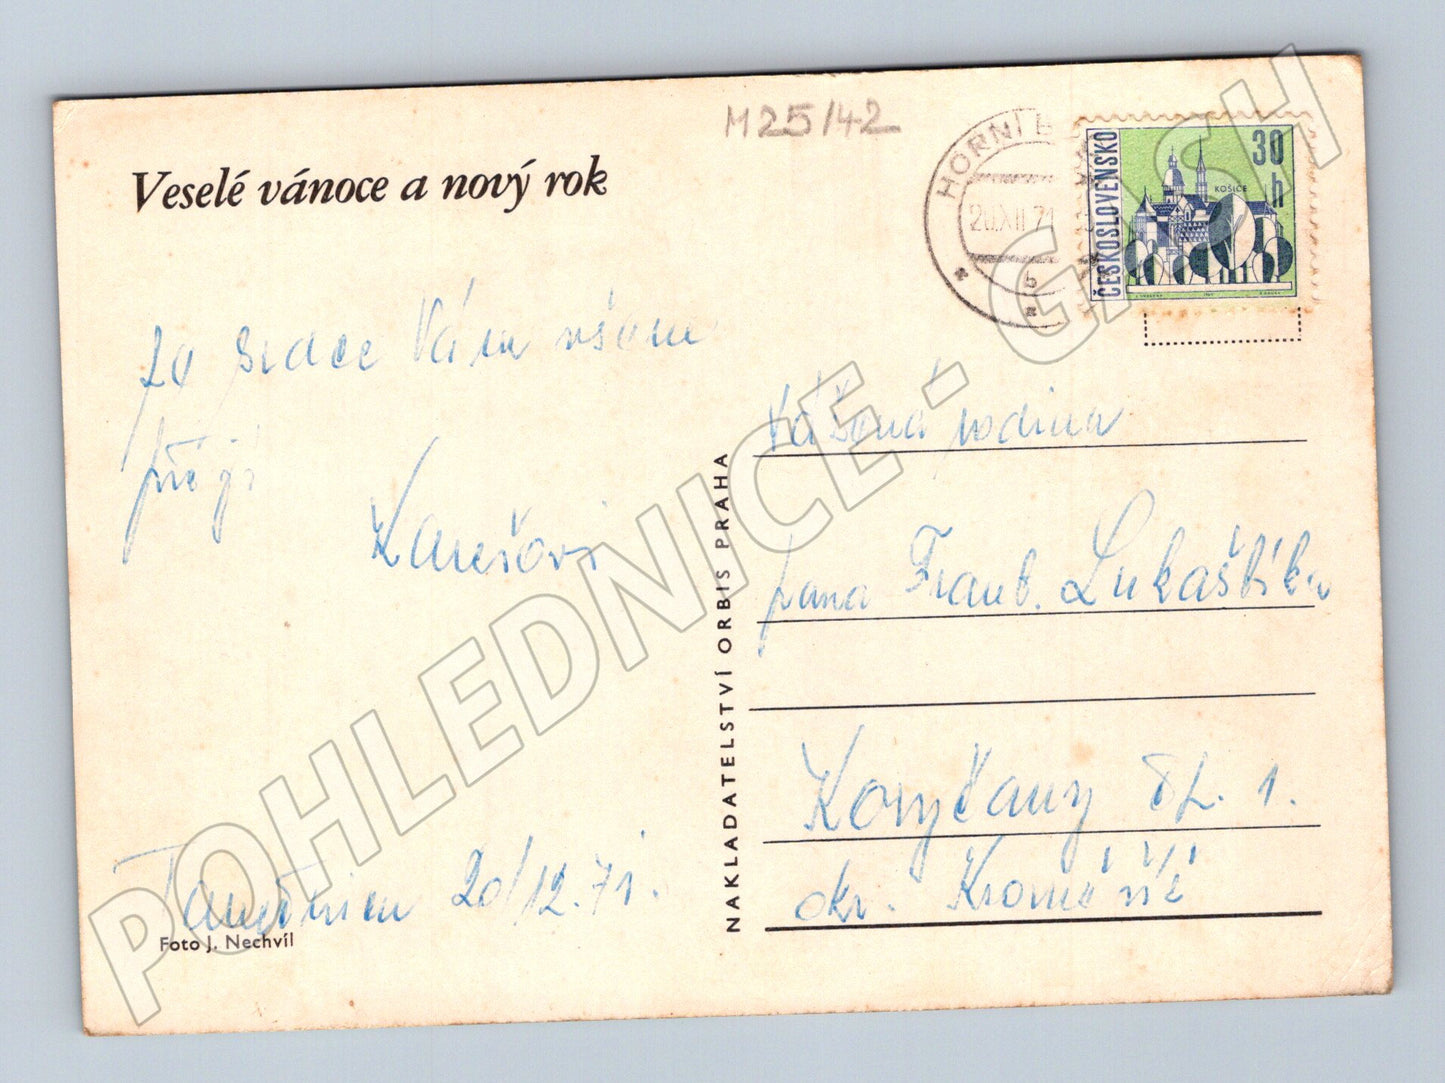 M25/42
HORNÍ B
20.XII.71
b
ČESKOSLOVENSKO
30
h
KOŠICE
Veselé vánoce a nový rok
ze srdce Vám všem
přejí
Karešovi
20/12.71.
Foto J. Nechvíl
NAKLADATELSTVÍ ORBIS PRAHA
Vážená rodina
pana Frant. Lukaštíka
Koryčany čt. 1.
okr. Kroměříž
POHLEDNICE - GASH